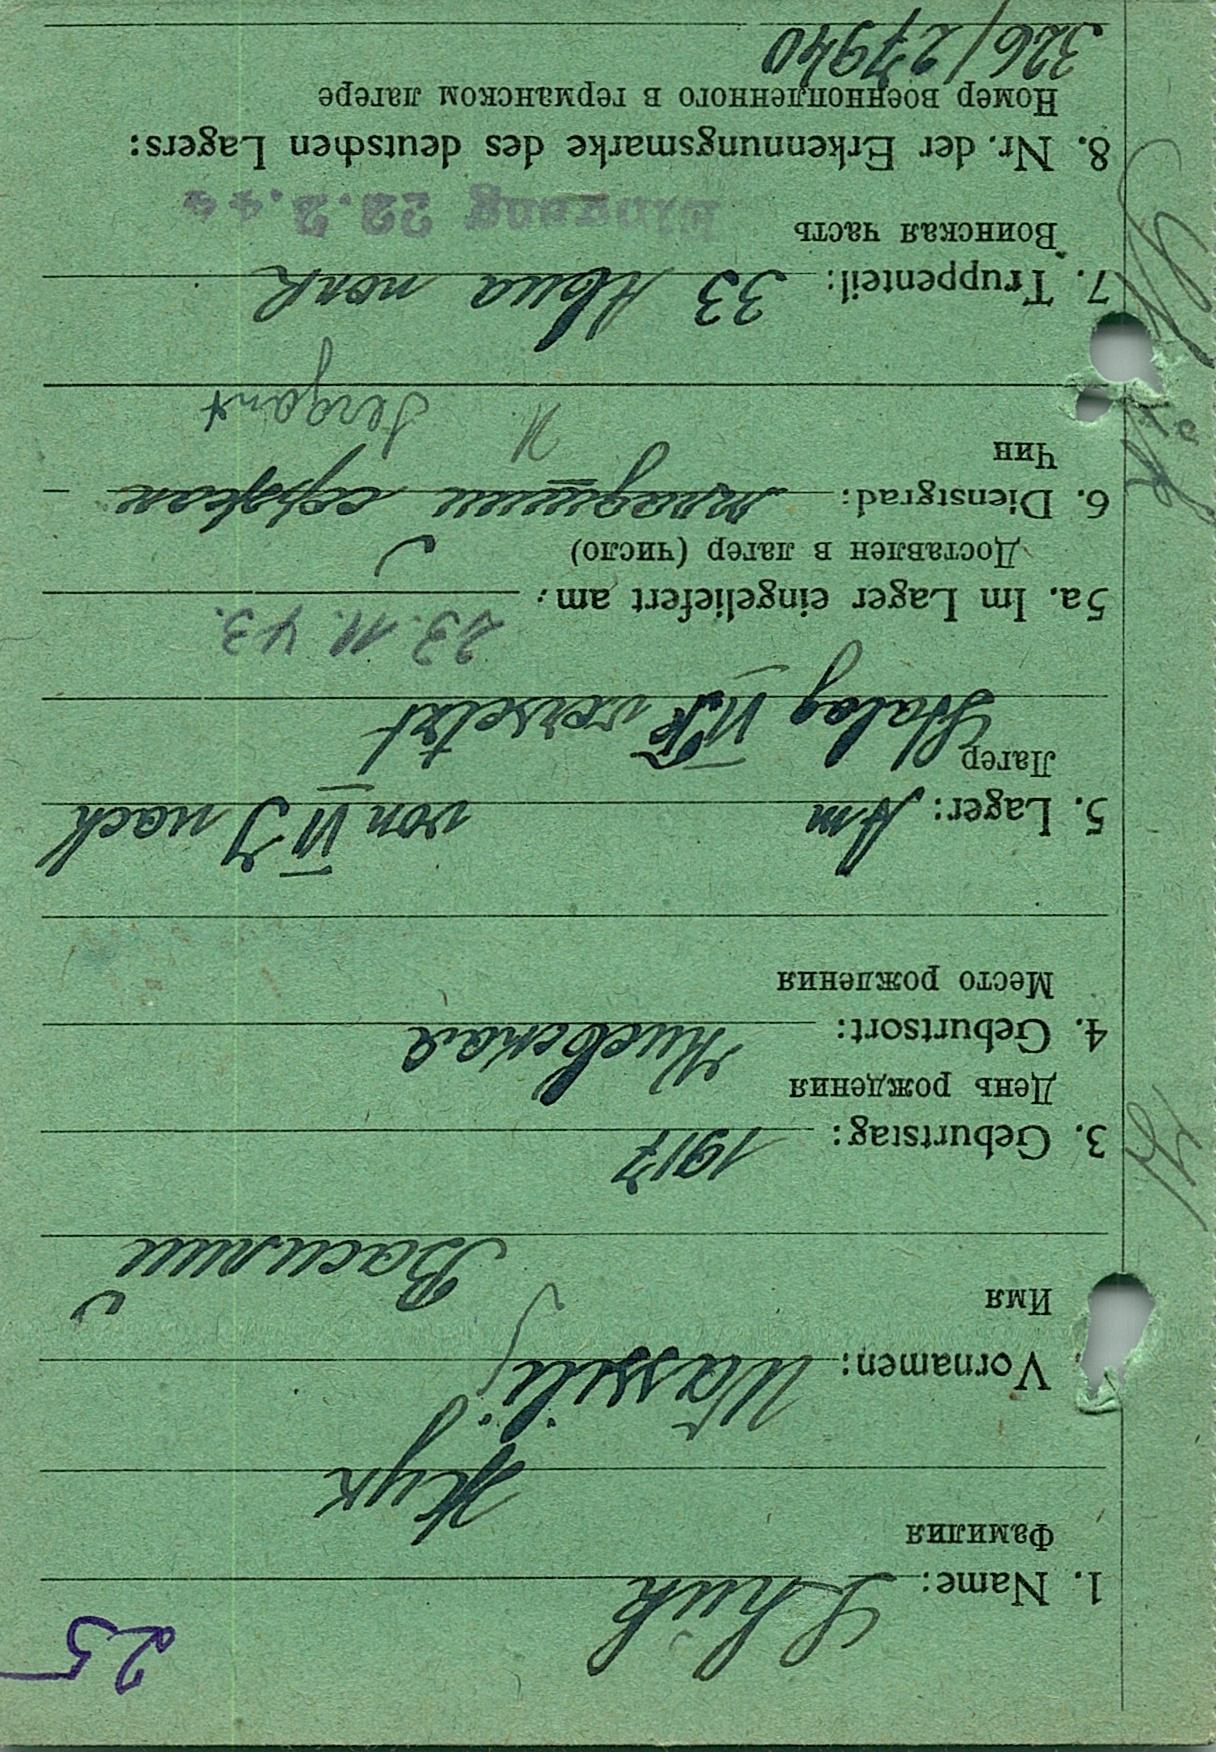 25
1. Name: Shuk
Фамилия
Жук
Vornamen: Wassilij
Имя
Василий
3. Geburtstag: 1917
День рождения
4. Geburtsort: Киевская
Место рождения
5. Lager: Am von VI J nach
Лагер
Stalag VI K versetzt
5a. Im Lager eingeliefert am: 23.11.43.
Доставлен в лагер (число)
6. Dienstgrad: младший сержан
Чин
Sergant
7. Truppenteil: 33 Авиа полк
Воинская часть
Eingang 22.2.44
8. Nr. der Erkennungsmarke des deutschen Lagers:
Номер военнопленного в германском лагере
326/27940